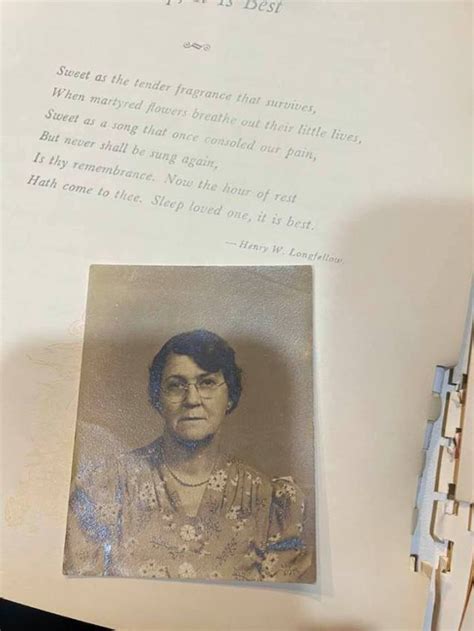 , it is Best
Sweet as the tender fragrance that survives,
When martyred flowers breathe out their little lives,
Sweet as a song that once consoled our pain,
But never shall be sung again,
Is thy remembrance. Now the hour of rest
Hath come to thee. Sleep loved one, it is best.
—Henry W. Longfellow